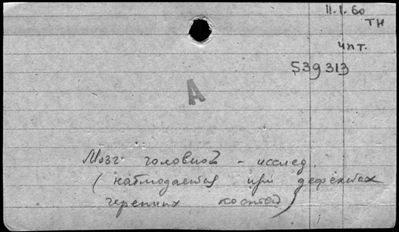 11.I.60
ТН
Чпт.
539313
А
Мозг головной - исслед.
(наблюдается при дефектах
черепных костей)